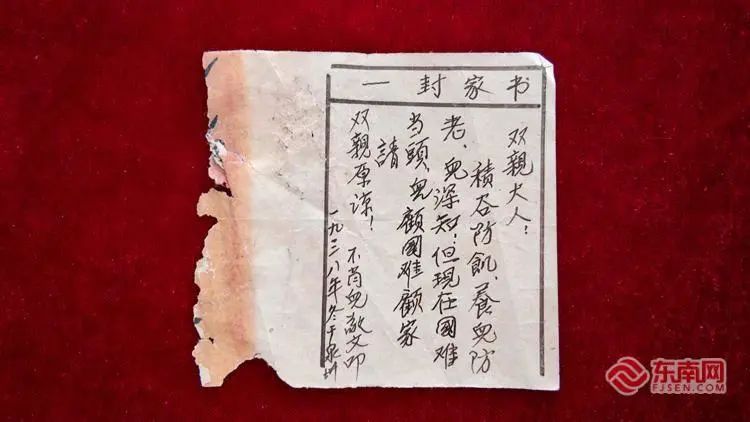 一封家书
双親大人：
積谷防飢，養兒防
老，兒深知！但現在國难
当頭，兒顧國难顧家
請
双親原谅！
不肖兒文叩
一九三八年冬于泉州
东南网
FJSEN.COM